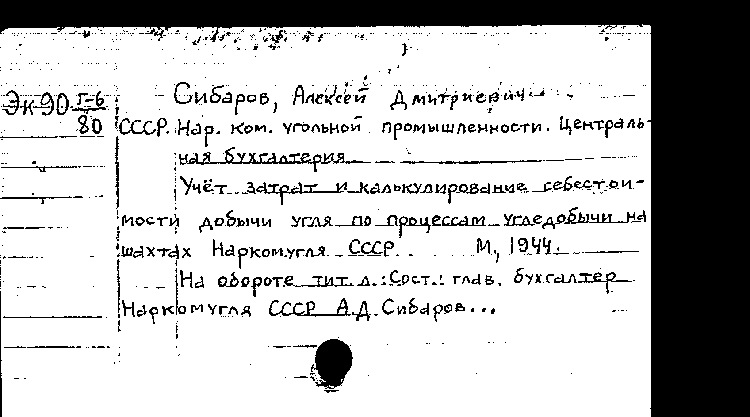 Сибаров, Алексей Дмитриевич
Эк-90 Г-6
80
СССР. Нар. ком. угольной промышленности. Централь-
ная бухгалтерия
Учёт затрат и калькулирование себестои-
мости добычи угля по процессам угледобычи на
шахтах Наркомугля СССР. М., 1944.
На обороте тит. л.: Сост.: глав. бухгалтер
Наркомугля СССР А.Д. Сибаров...